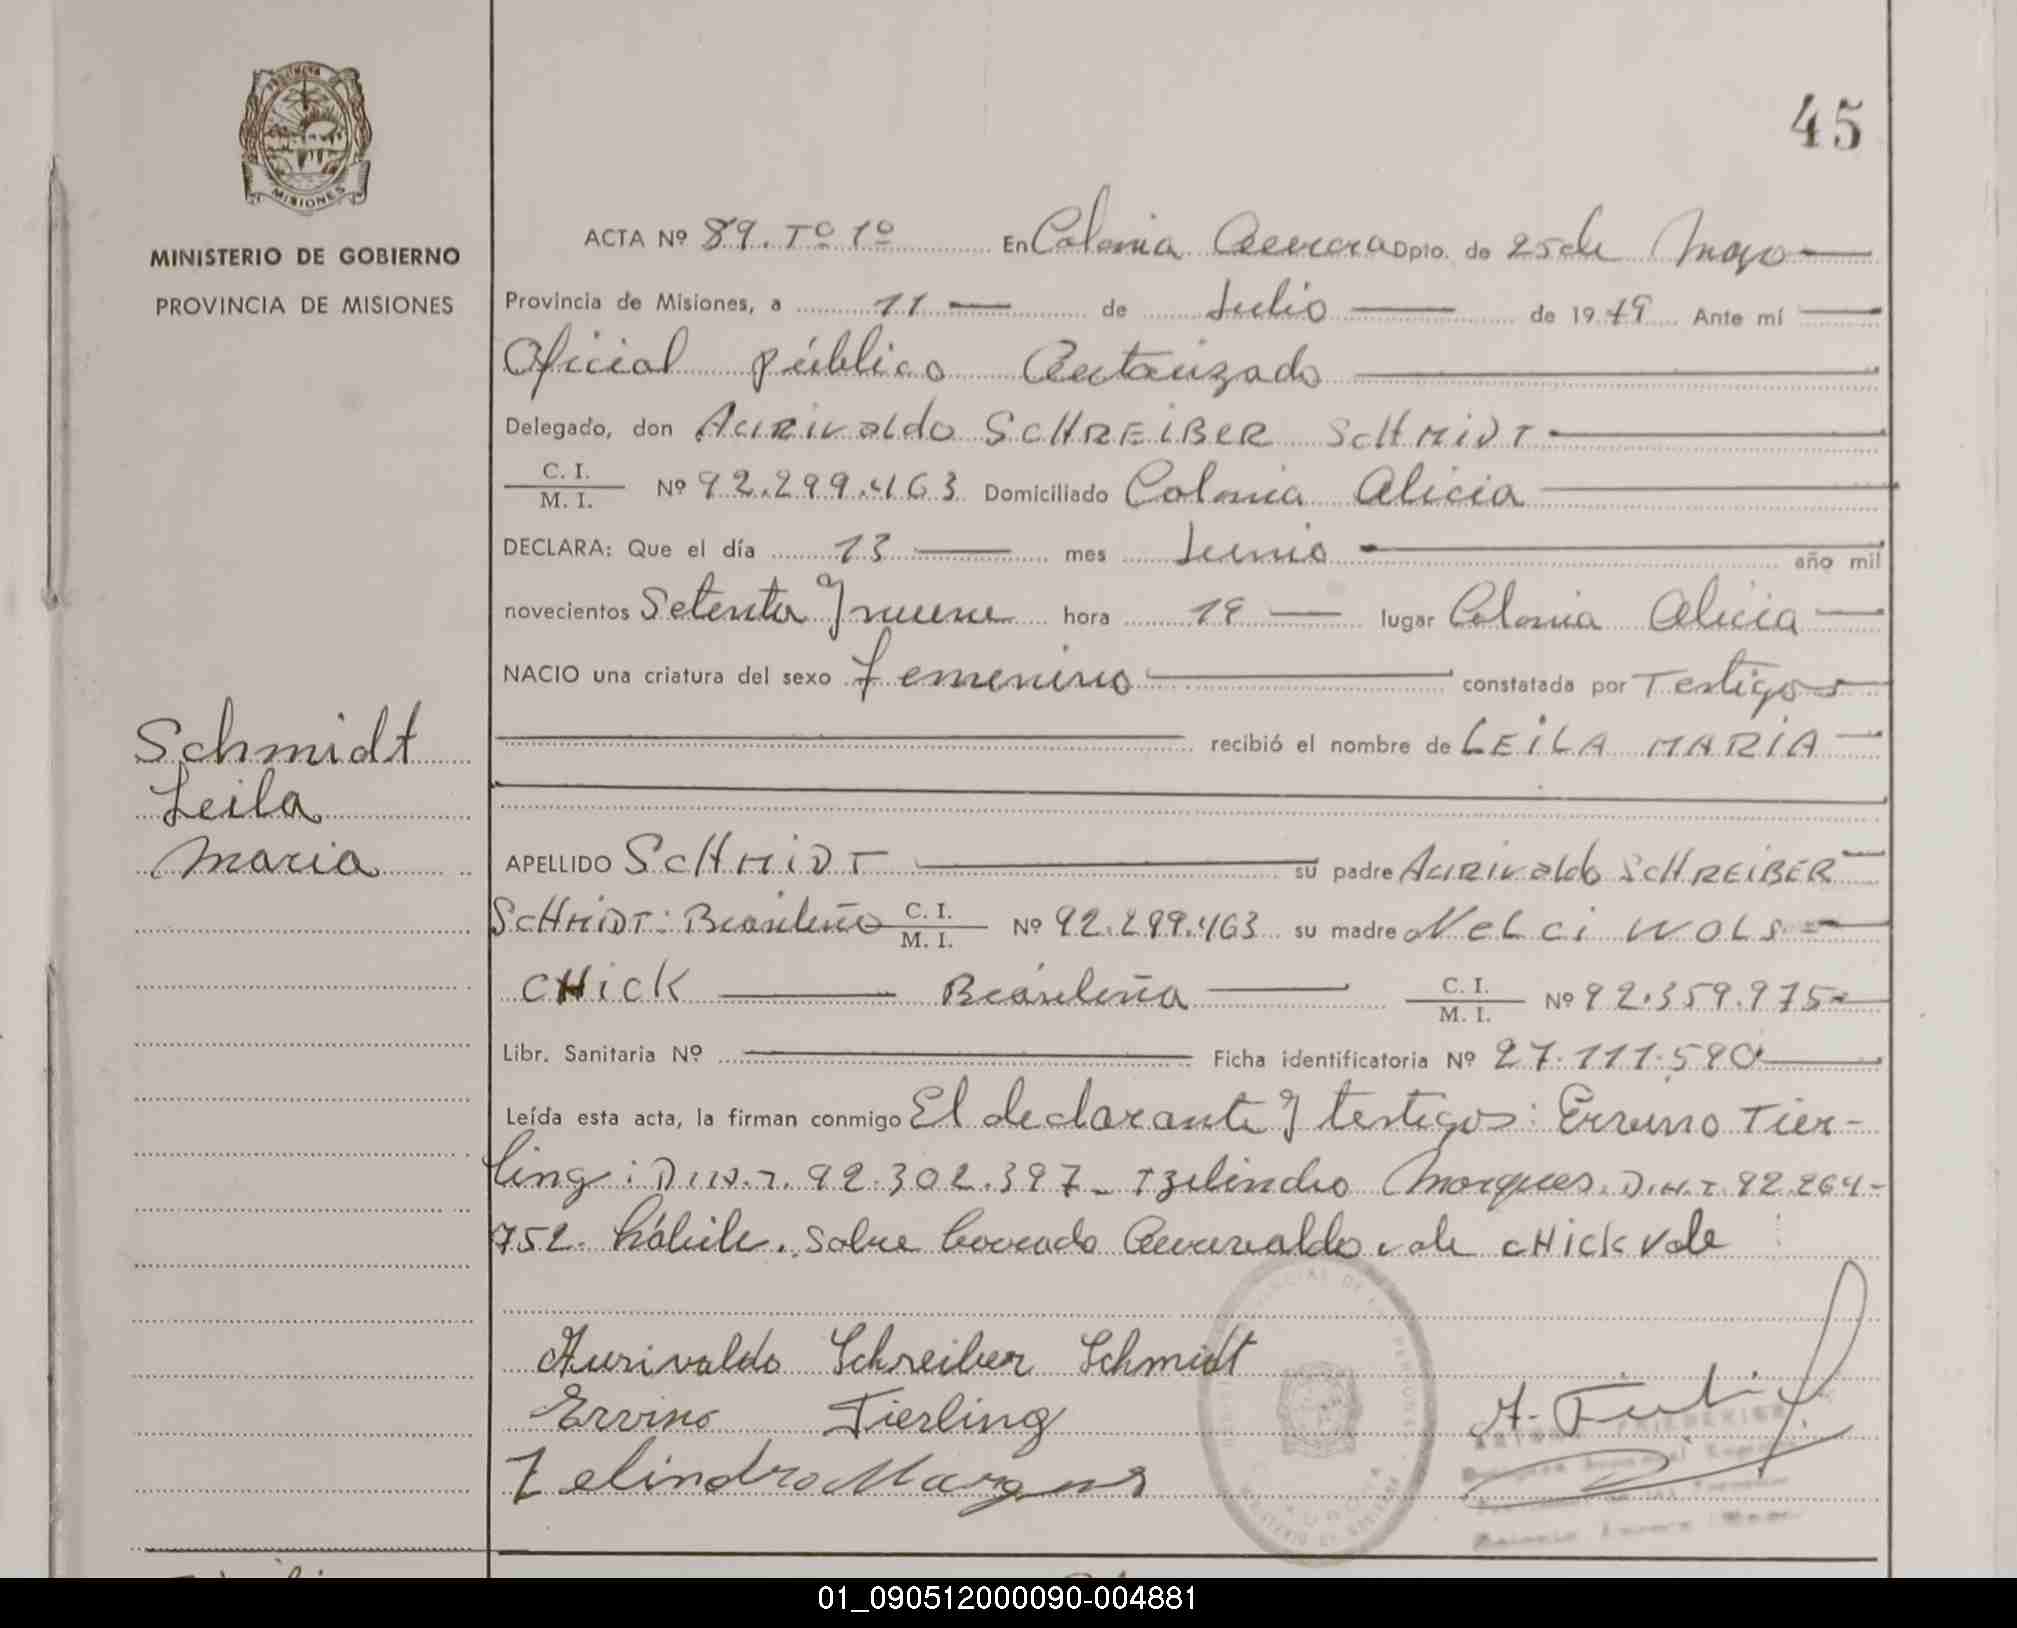 45
PROVINCIA
MISIONES
MINISTERIO DE GOBIERNO
PROVINCIA DE MISIONES
Schmidt
Leila
Maria
ACTA Nº 89. Tº 1º En Colonia Aurora Dpto. de 25 de Mayo
Provincia de Misiones, a 11 de Julio de 1979 Ante mí
Oficial público Autorizado
Delegado, don AURIVALDO SCHREIBER SCHMIDT
C. I.
M. I. Nº 92.299.463 Domiciliado Colonia Alicia
DECLARA: Que el día 13 mes Junio año mil
novecientos Setenta y nueve hora 19 lugar Colonia Alicia
NACIO una criatura del sexo femenino constatada por Testigos
recibió el nombre de LEILA MARIA
APELLIDO SCHMIDT su padre AURIVALDO SCHREIBER
SCHMIDT: Brasileño C. I. M. I. Nº 92.299.463 su madre NELCI WOLS-
CHICK Brasileña C. I. M. I. Nº 92.359.975
Libr. Sanitaria Nº Ficha identificatoria Nº 27.111.590
Leída esta acta, la firman conmigo El declarante y testigos: Ervino Tier-
ling: D.N.I. 92.302.397 - Izelindro Marques. D.N.I. 92.264-
752. hábile. Sobre borrado Aurivaldo vale CHICK vale
Aurivaldo Schreiber Schmidt
Ervino Tierling
Zelindro Marques
01_090512000090-004881